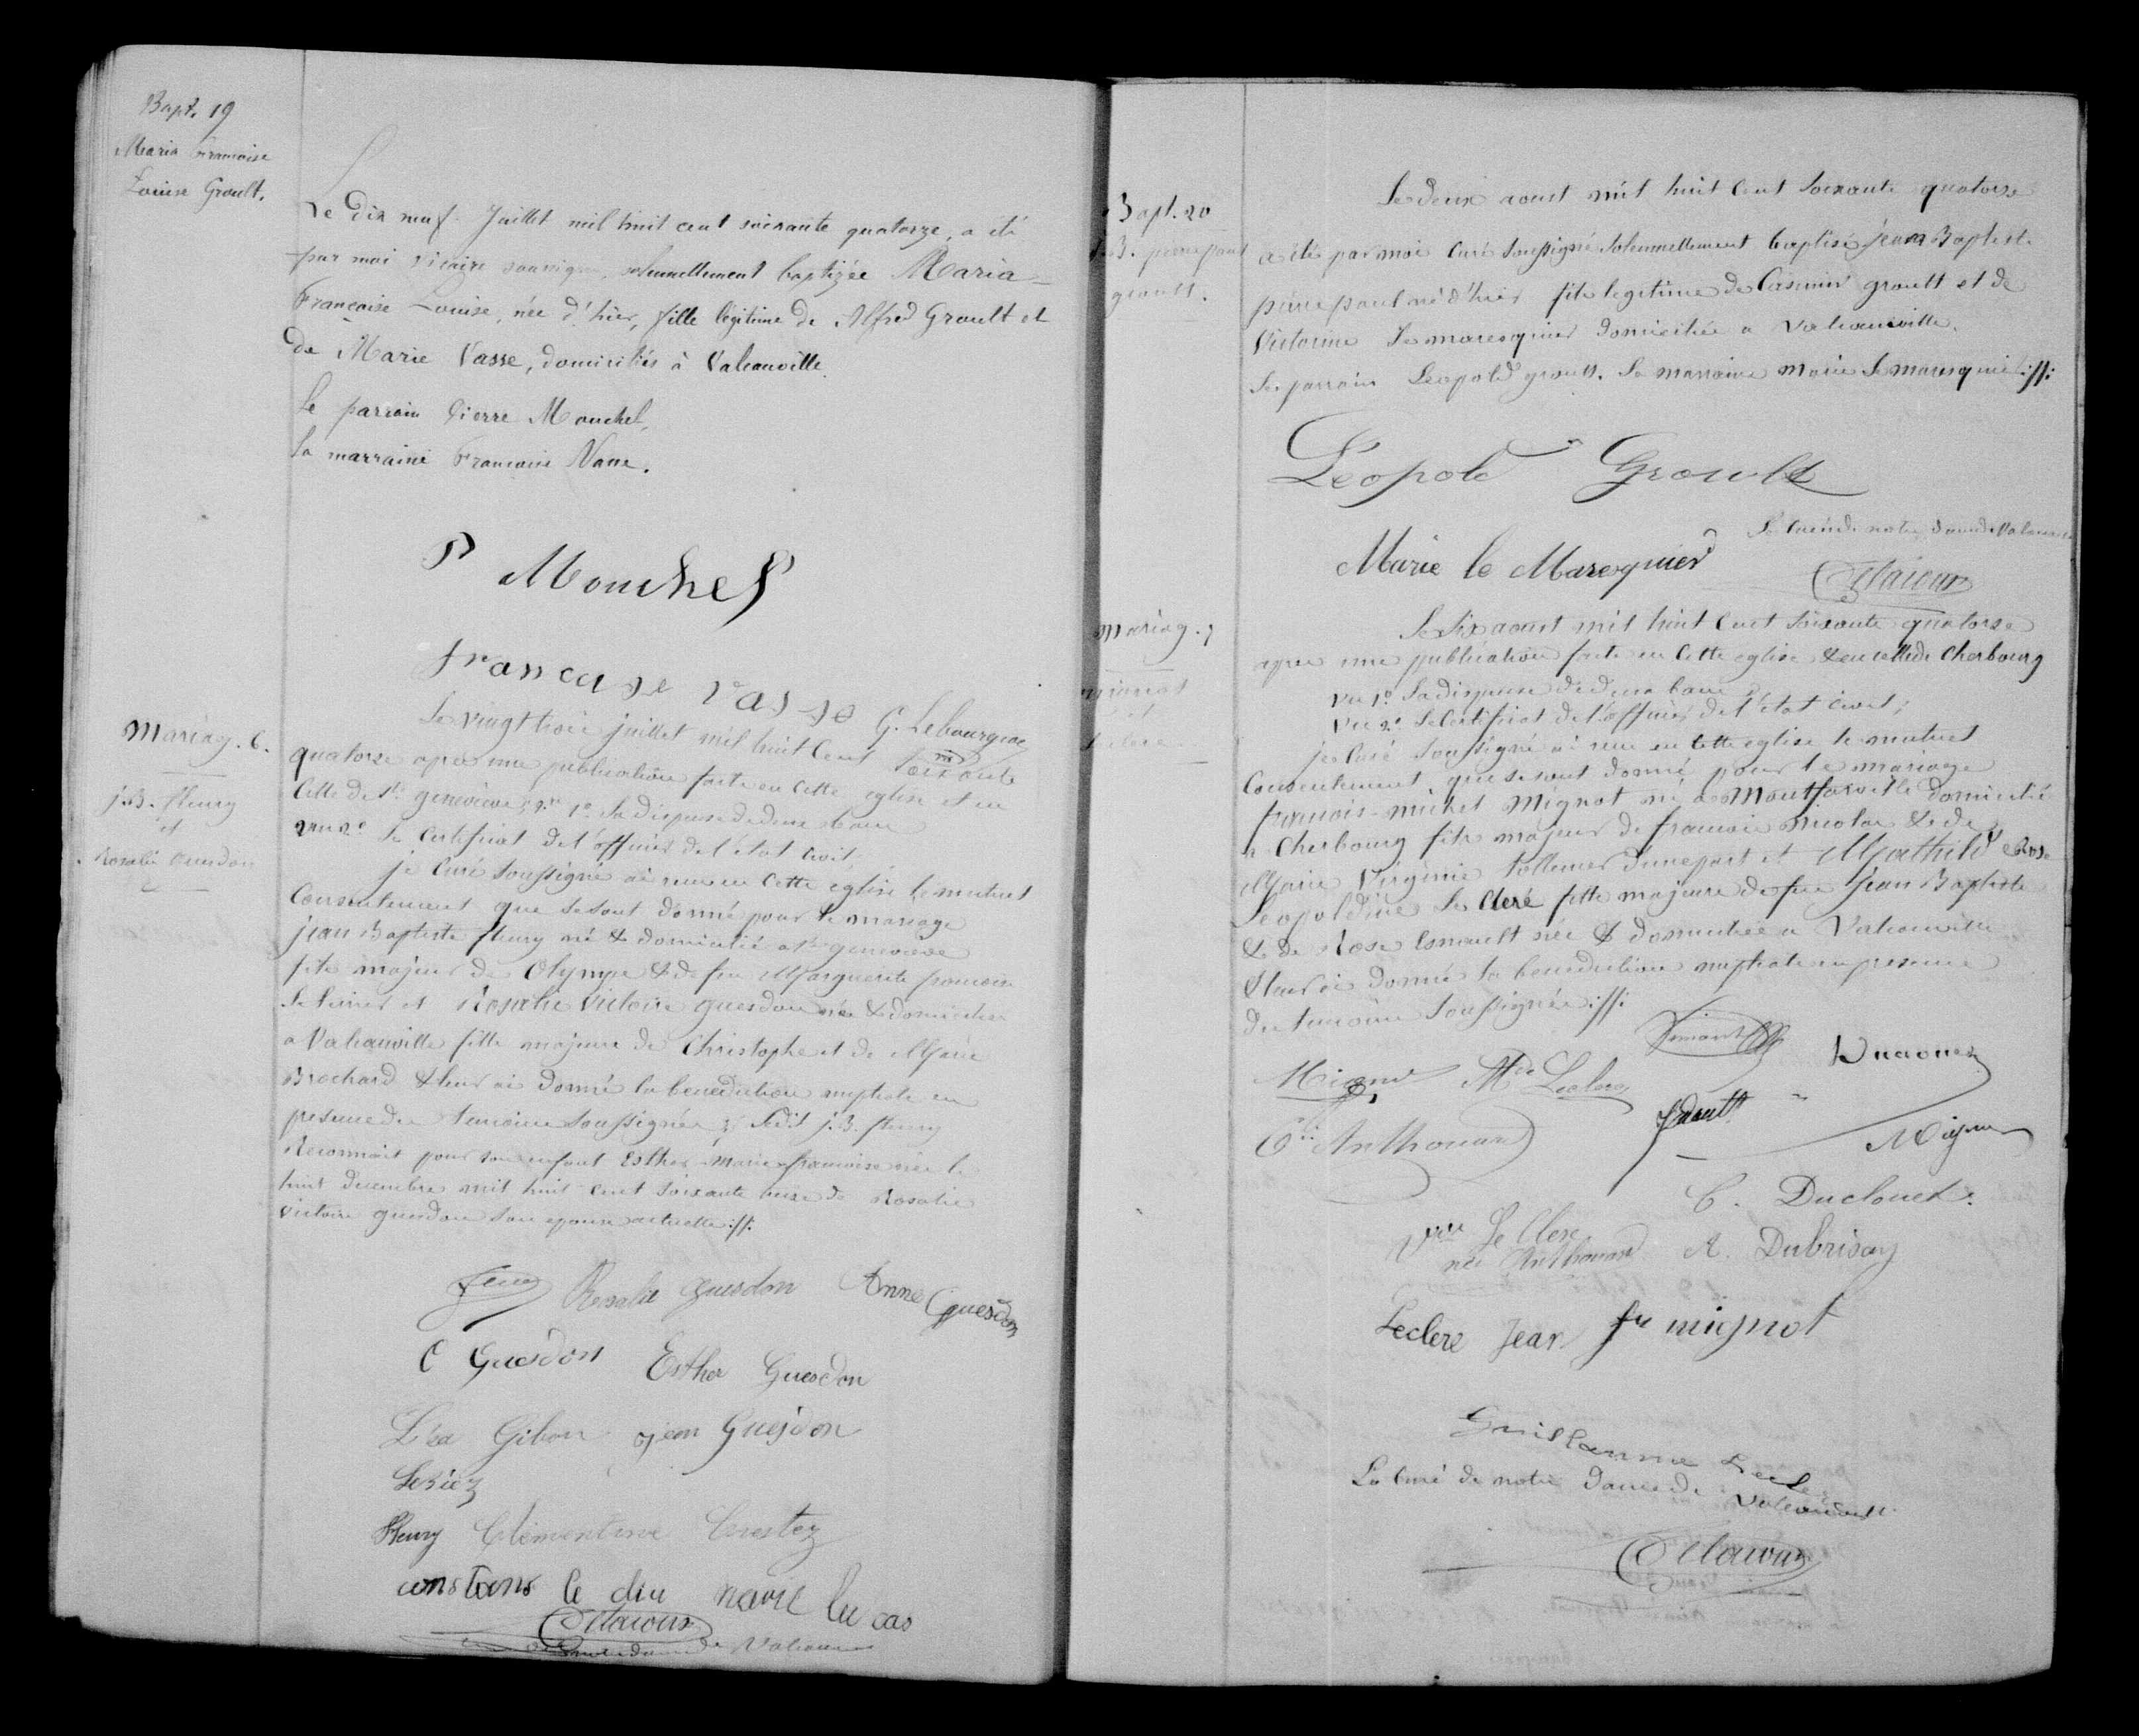 Bapt. 19
Maria Francoise
Louise Groult.
Le dix neuf Juillet mil huit cent soixante quatorze, a été
par moi vicaire soussigné, solennellement baptizée Maria-
Francoise Louise, née d'hier, fille légitime de Alfred Groult et
de Marie Vasse, domiciliés à Valcanville.
Le parrain Pierre Mouchel,
La marraine Francoise Vasse.
P Mouchel
Francoise Vasse
G. Lebourgeois
Mariag. 6.
j.B. fleury
et
Rosalie Guesdon
Le vingt trois juillet mil huit cent soixante
quatorse apres une publication faite en cette eglise et en
celle de Ste genevieve; vu 1º la dispense de deux bans
vu 2º le certificat de l'officier de l'etat civil;
je curé soussigné ai reçu en cette eglise le mutuel
Consentement que se sont donné pour le mariage
jean Baptiste fleury né & domicilié a Ste genevieve
fils majeur de Olympe & de feu Marguerite francoise
et Rosalie Victoire guesdon née & domiciliée
a Valcanville fille majeure de Christophe et de Marie
Brochard & leur ai donné la benediction nuptiale en
presence des temoins soussignés; ledit j.B. fleury
Reconnait pour son enfant Esther-Marie-francoise née le
huit decembre mil huit cent soixante onze de Rosalie
victoire guesdon son epouse actuelle :ff:
fleury Rosalie guesdon Anne Guesdon
C Guesdon Esther Guesdon
Léa Gibon jean Guesdon
Fleury Clémentine
constans le diu marie lucas
Bapt. 20
J.B. pierre paul
groult.
Le deux aoust mil huit cent soixante quatorse
a été par moi curé soussigné solennellement baptisé jean Baptiste
pierre paul né d'hier fils legitime de Casimir groult et de
Victorine Le maresquier domiciliés a Valcanville.
Le parrain Leopold groult. La marraine marie Le maresquier :ff:
Léopold Groult
Marie le Maresquier
Le curé de notre dame de Valcanville
mariag. 7
mignot
et
Le clerc
Le six aoust mil huit cent soixante quatorse
apres une publication faite en cette eglise & en celle de Cherbourg
vu 1º la dispense de deux bans
vu 2º le certificat de l'officier de l'etat civil;
je curé soussigné ai reçu en cette eglise le mutuel
Consentement que se sont donné pour le mariage
francois-michel Mignot né a Montfarville domicilié
a Cherbourg fils majeur de francois nicolas & de
Marie Virginie Tollemer d'une part et Mathilde Rose
Leopoldine Le Clerc fille majeure de feu jean Baptiste
& de Rose Esnault née & domiciliée a Valcanville
& leur ai donné la benediction nuptiale en presence
des temoins soussignés :ff:
Mignot Mde Leclerc
Anthouard
Mignot
C. Duclouet.
Vve Le Clerc
née Anthouard A. Dubrisay
Leclerc Jean fr mignot
Guillaume Lecler
Le curé de notre dame de Valcanville